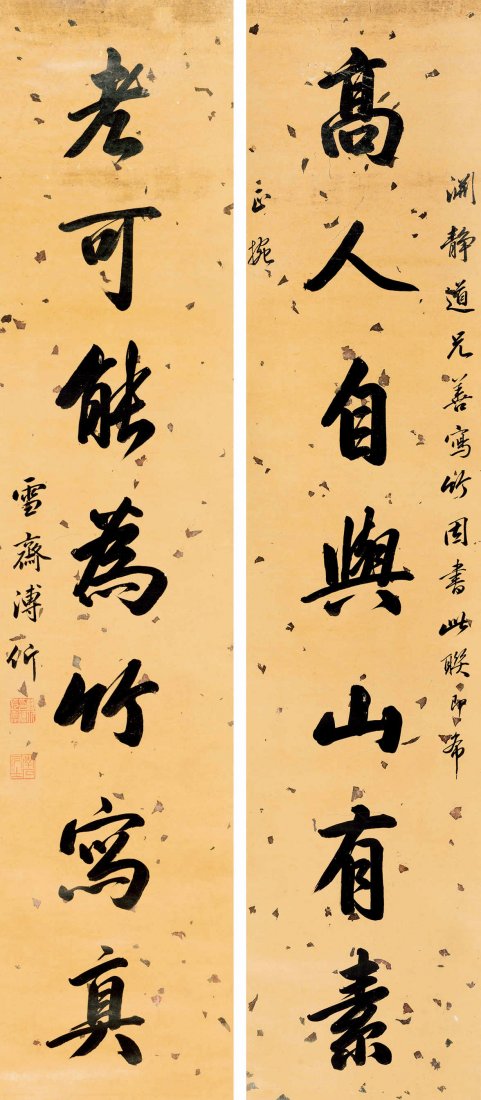 淵静道兄善寫竹因書此聯即希
正捥
髙人自與山有素
老可能為竹寫真
雪齋溥伒